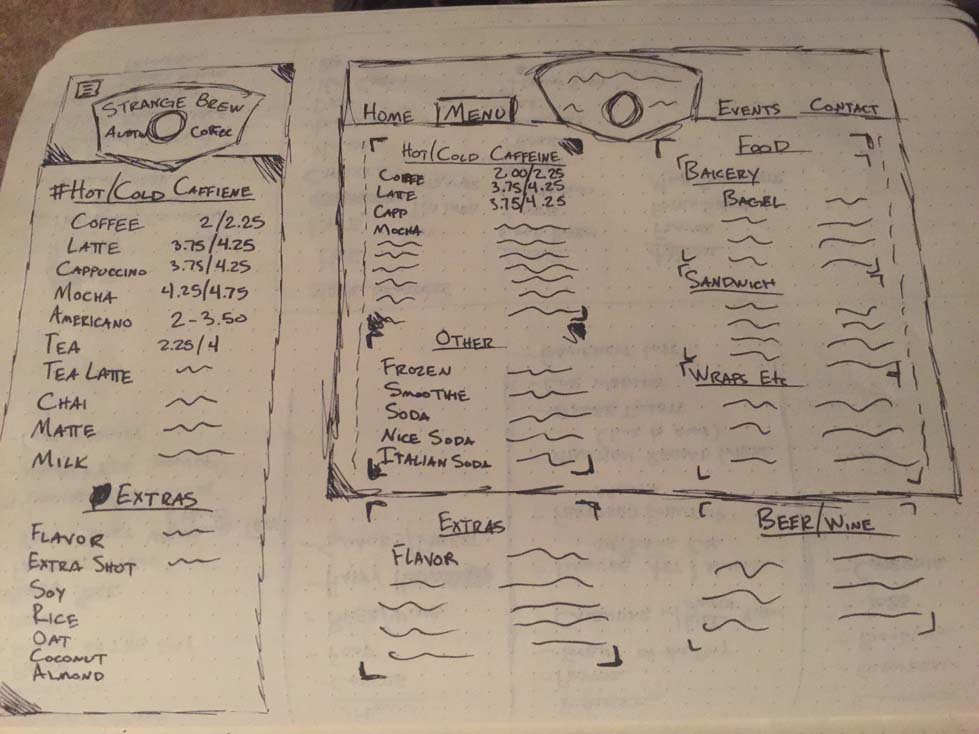 STRANGE BREW
AUSTIN COFFEE
#HOT/COLD CAFFIENE
COFFEE 2/2.25
LATTE 3.75/4.25
CAPPUCCINO 3.75/4.25
MOCHA 4.25/4.75
AMERICANO 2-3.50
TEA 2.25/4
TEA LATTE
CHAI
MATTE
MILK
EXTRAS
FLAVOR
EXTRA SHOT
SOY
RICE
OAT
COCONUT
ALMOND
HOME MENU EVENTS CONTACT
HOT/COLD CAFFEINE
COFFEE 2.00/2.25
LATE 3.75/4.25
CAPP 3.75/4.25
MOCHA
OTHER
FROZEN
SMOOTHIE
SODA
NICE SODA
ITALIAN SODA
EXTRAS
FLAVOR
FOOD
BAKERY
BAGEL
SANDWICH
WRAPS ETC
BEER/WINE